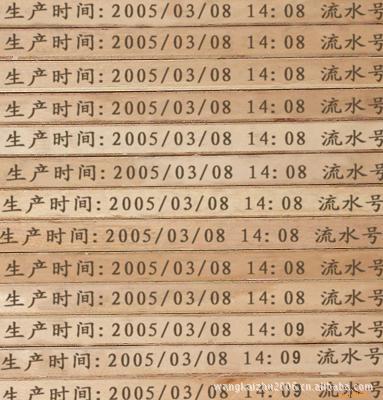 生产时间:2005/03/08 14:08 流水号
生产时间:2005/03/08 14:08 流水号
生产时间:2005/03/08 14:08 流水号
生产时间:2005/03/08 14:08 流水号
生产时间:2005/03/08 14:08 流水号
生产时间:2005/03/08 14:08 流水号
生产时间:2005/03/08 14:08 流水号
生产时间:2005/03/08 14:08 流水号
生产时间:2005/03/08 14:08 流水号
生产时间:2005/03/08 14:08 流水号
生产时间:2005/03/08 14:09 流水号
生产时间:2005/03/08 14:09 流水号
生产时间:2005/03/08 14:09 流水号
wangkaizhu2006.cn.alibaba.com